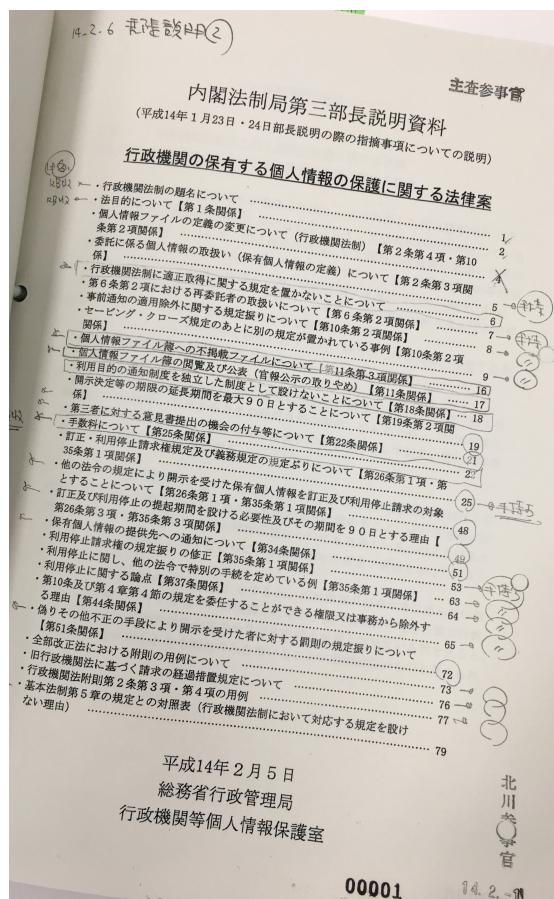 14.2.6
主査参事官
内閣法制局第三部長説明資料
(平成14年1月23日・24日部長説明の際の指摘事項についての説明)
行政機関の保有する個人情報の保護に関する法律案
・行政機関法制の題名について 1
・法目的について【第1条関係】 2
・個人情報ファイルの定義の変更について(行政機関法制)【第2条第4項・第10
条第2項関係】 4
・委託に係る個人情報の取扱い(保有個人情報の定義)について【第2条第3項関
係】 5
・行政機関法制に適正取得に関する規定を置かないことについて 6
・第6条第2項における再委託者の取扱いについて【第6条第2項関係】 7
・事前通知の適用除外に関する規定振りについて【第10条第2項関係】 8
・セービング・クローズ規定のあとに別の規定が置かれている事例【第10条第2項
関係】 9
・個人情報ファイル簿への不掲載ファイルについて【第11条第3項関係】 16
・個人情報ファイル簿の閲覧及び公表(官報公示の取りやめ)【第11条関係】 17
・利用目的の通知制度を独立した制度として設けないことについて【第18条関係】 18
・開示決定等の期限の延長期間を最大90日とすることについて【第19条第2項関
係】 19
・第三者に対する意見書提出の機会の付与等について【第22条関係】 21
・手数料について【第25条関係】
・訂正・利用停止請求権規定及び義務規定の規定ぶりについて【第26条第1項・第
35条第1項関係】 25
・他の法令の規定により開示を受けた保有個人情報を訂正及び利用停止請求の対象
とすることについて【第26条第1項・第35条第1項関係】 48
・訂正及び利用停止の提起期間を設ける必要性及びその期間を90日とする理由【
第26条第3項・第35条第3項関係】 49
・保有個人情報の提供先への通知について【第34条関係】 51
・利用停止請求権の規定振りの修正【第35条第1項関係】 53
・利用停止に関し、他の法令で特別の手続を定めている例【第35条第1項関係】 63
・利用停止に関する論点【第37条関係】 64
・第10条及び第4章第4節の規定を委任することができる権限又は事務から除外す
る理由【第44条関係】 65
・偽りその他不正の手段により開示を受けた者に対する罰則の規定振りについて
【第51条関係】 72
・全部改正法における附則の用例について 73
・旧行政機関法に基づく請求の経過措置規定について 76
・行政機関法附則第2条第3項・第4項の用例 77
・基本法制第5章の規定との対照表(行政機関法制において対応する規定を設け
ない理由) 79
平成14年2月5日
総務省行政管理局
行政機関等個人情報保護室
北川参事官
00001